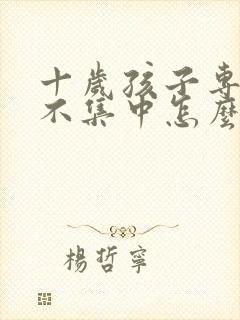 十歲孩子專
不集中怎麼
楊哲寧